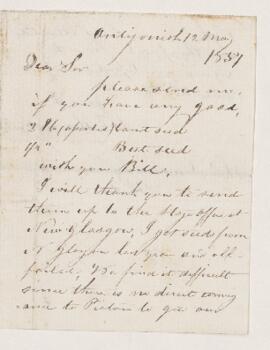 Antigonish 12 May
1857
Dear Sir
please send me
if you have any good,
Seed
" Beet seed
with your Bill,
I will thank you to send
them up to the Stage office at
New Glasgow, I got seeds from
N Glasgow last year and all
failed, We find it difficult
since there is no direct convey
ance to Pictou to get our